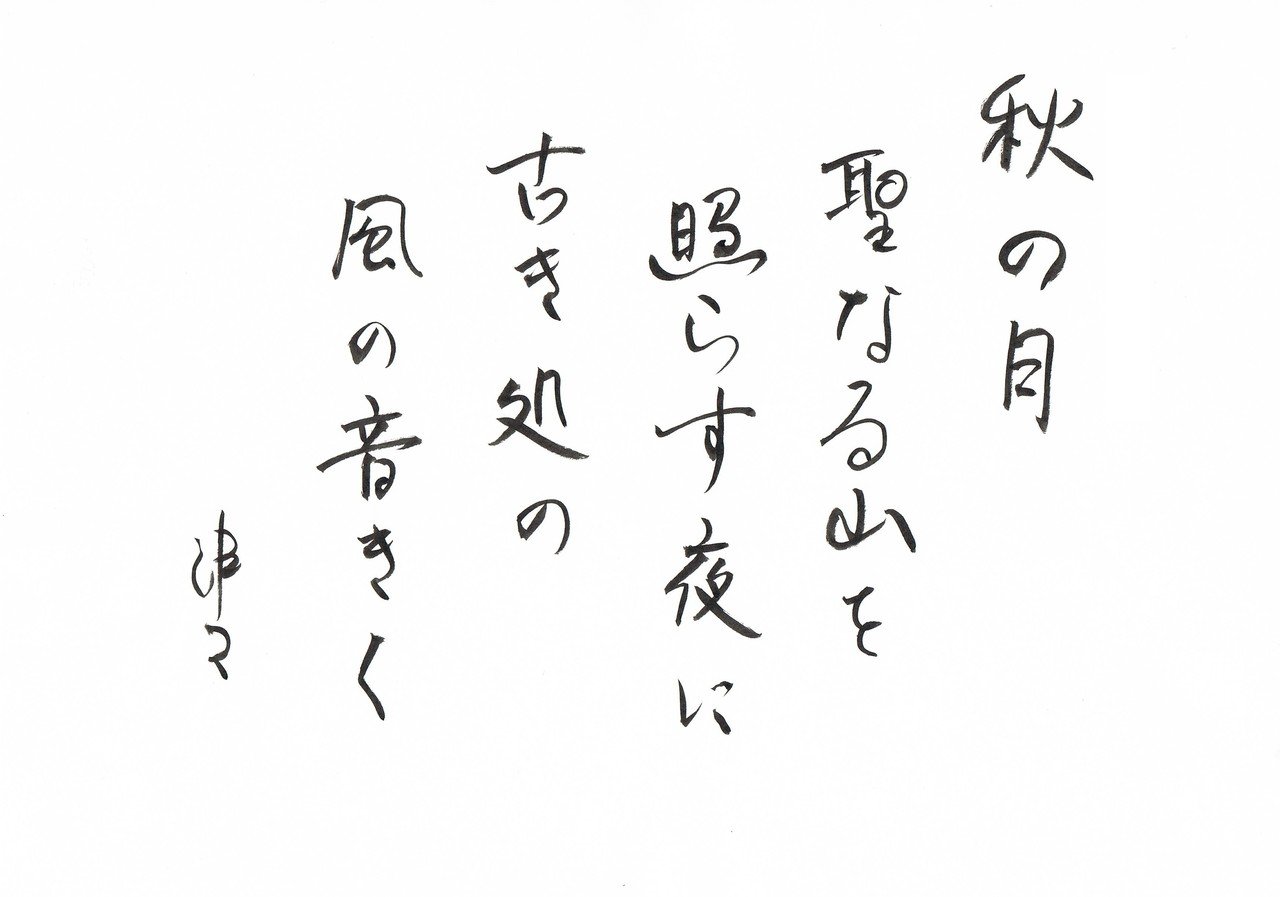 秋の月
聖なる山を
照らす夜に
古き処の
風の音きく